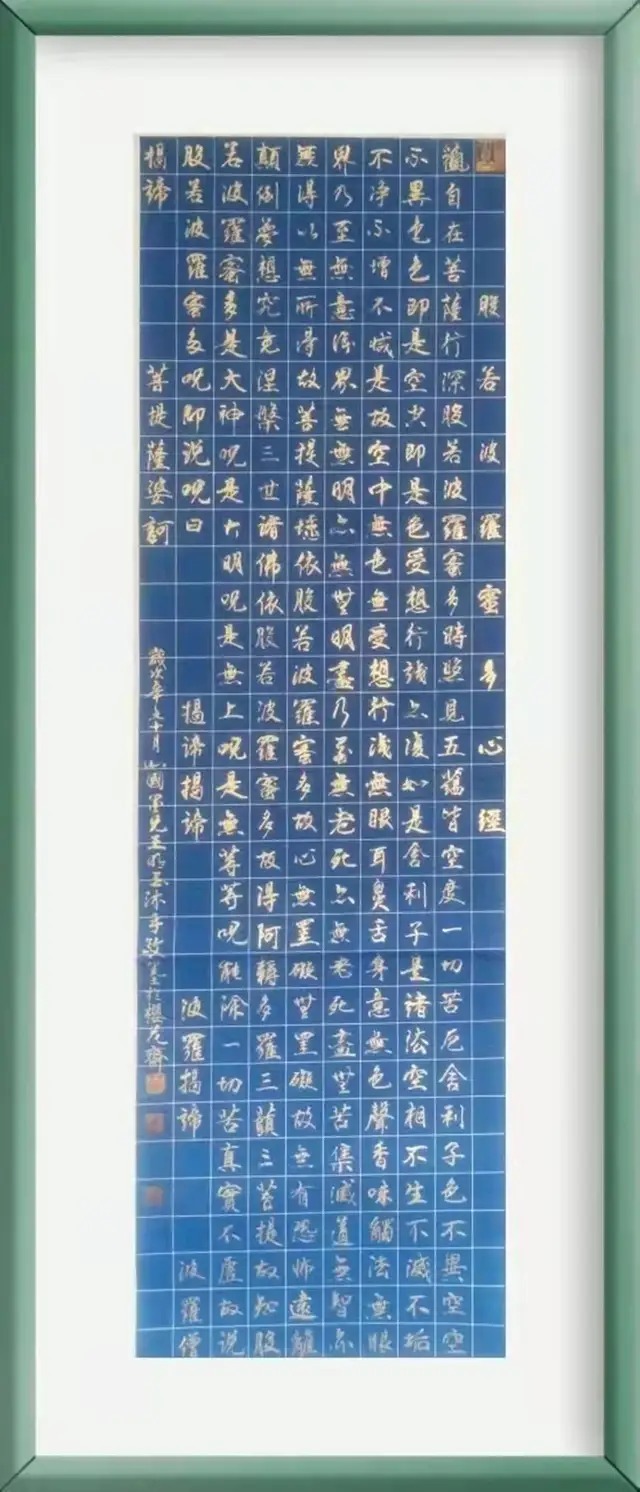 般若波羅蜜多心經
觀自在菩薩行深般若波羅蜜多時照見五蘊皆空度一切苦厄舍利子色不異空空
不異色色即是空空即是色受想行識亦復如是舍利子是諸法空相不生不滅不垢
不净不增不減是故空中無色無受想行識無眼耳鼻舌身意無色聲香味觸法無眼
界乃至無意識界無無明亦無無明盡乃至無老死亦無老死盡無苦集滅道無智亦
無得以無所得故菩提薩埵依般若波羅蜜多故心無罣礙無罣礙故無有恐怖遠離
顛倒夢想究竟涅槃三世諸佛依般若波羅蜜多故得阿耨多羅三藐三菩提故知般
若波羅蜜多是大神呪是大明呪是無上呪是無等等呪能除一切苦真實不虛故说
般若波羅蜜多呪即说呪曰 揭諦揭諦 波羅揭諦 波羅僧
揭諦 菩提薩婆訶
歲次辛丑十月 國 沐手敬書於櫻花齋